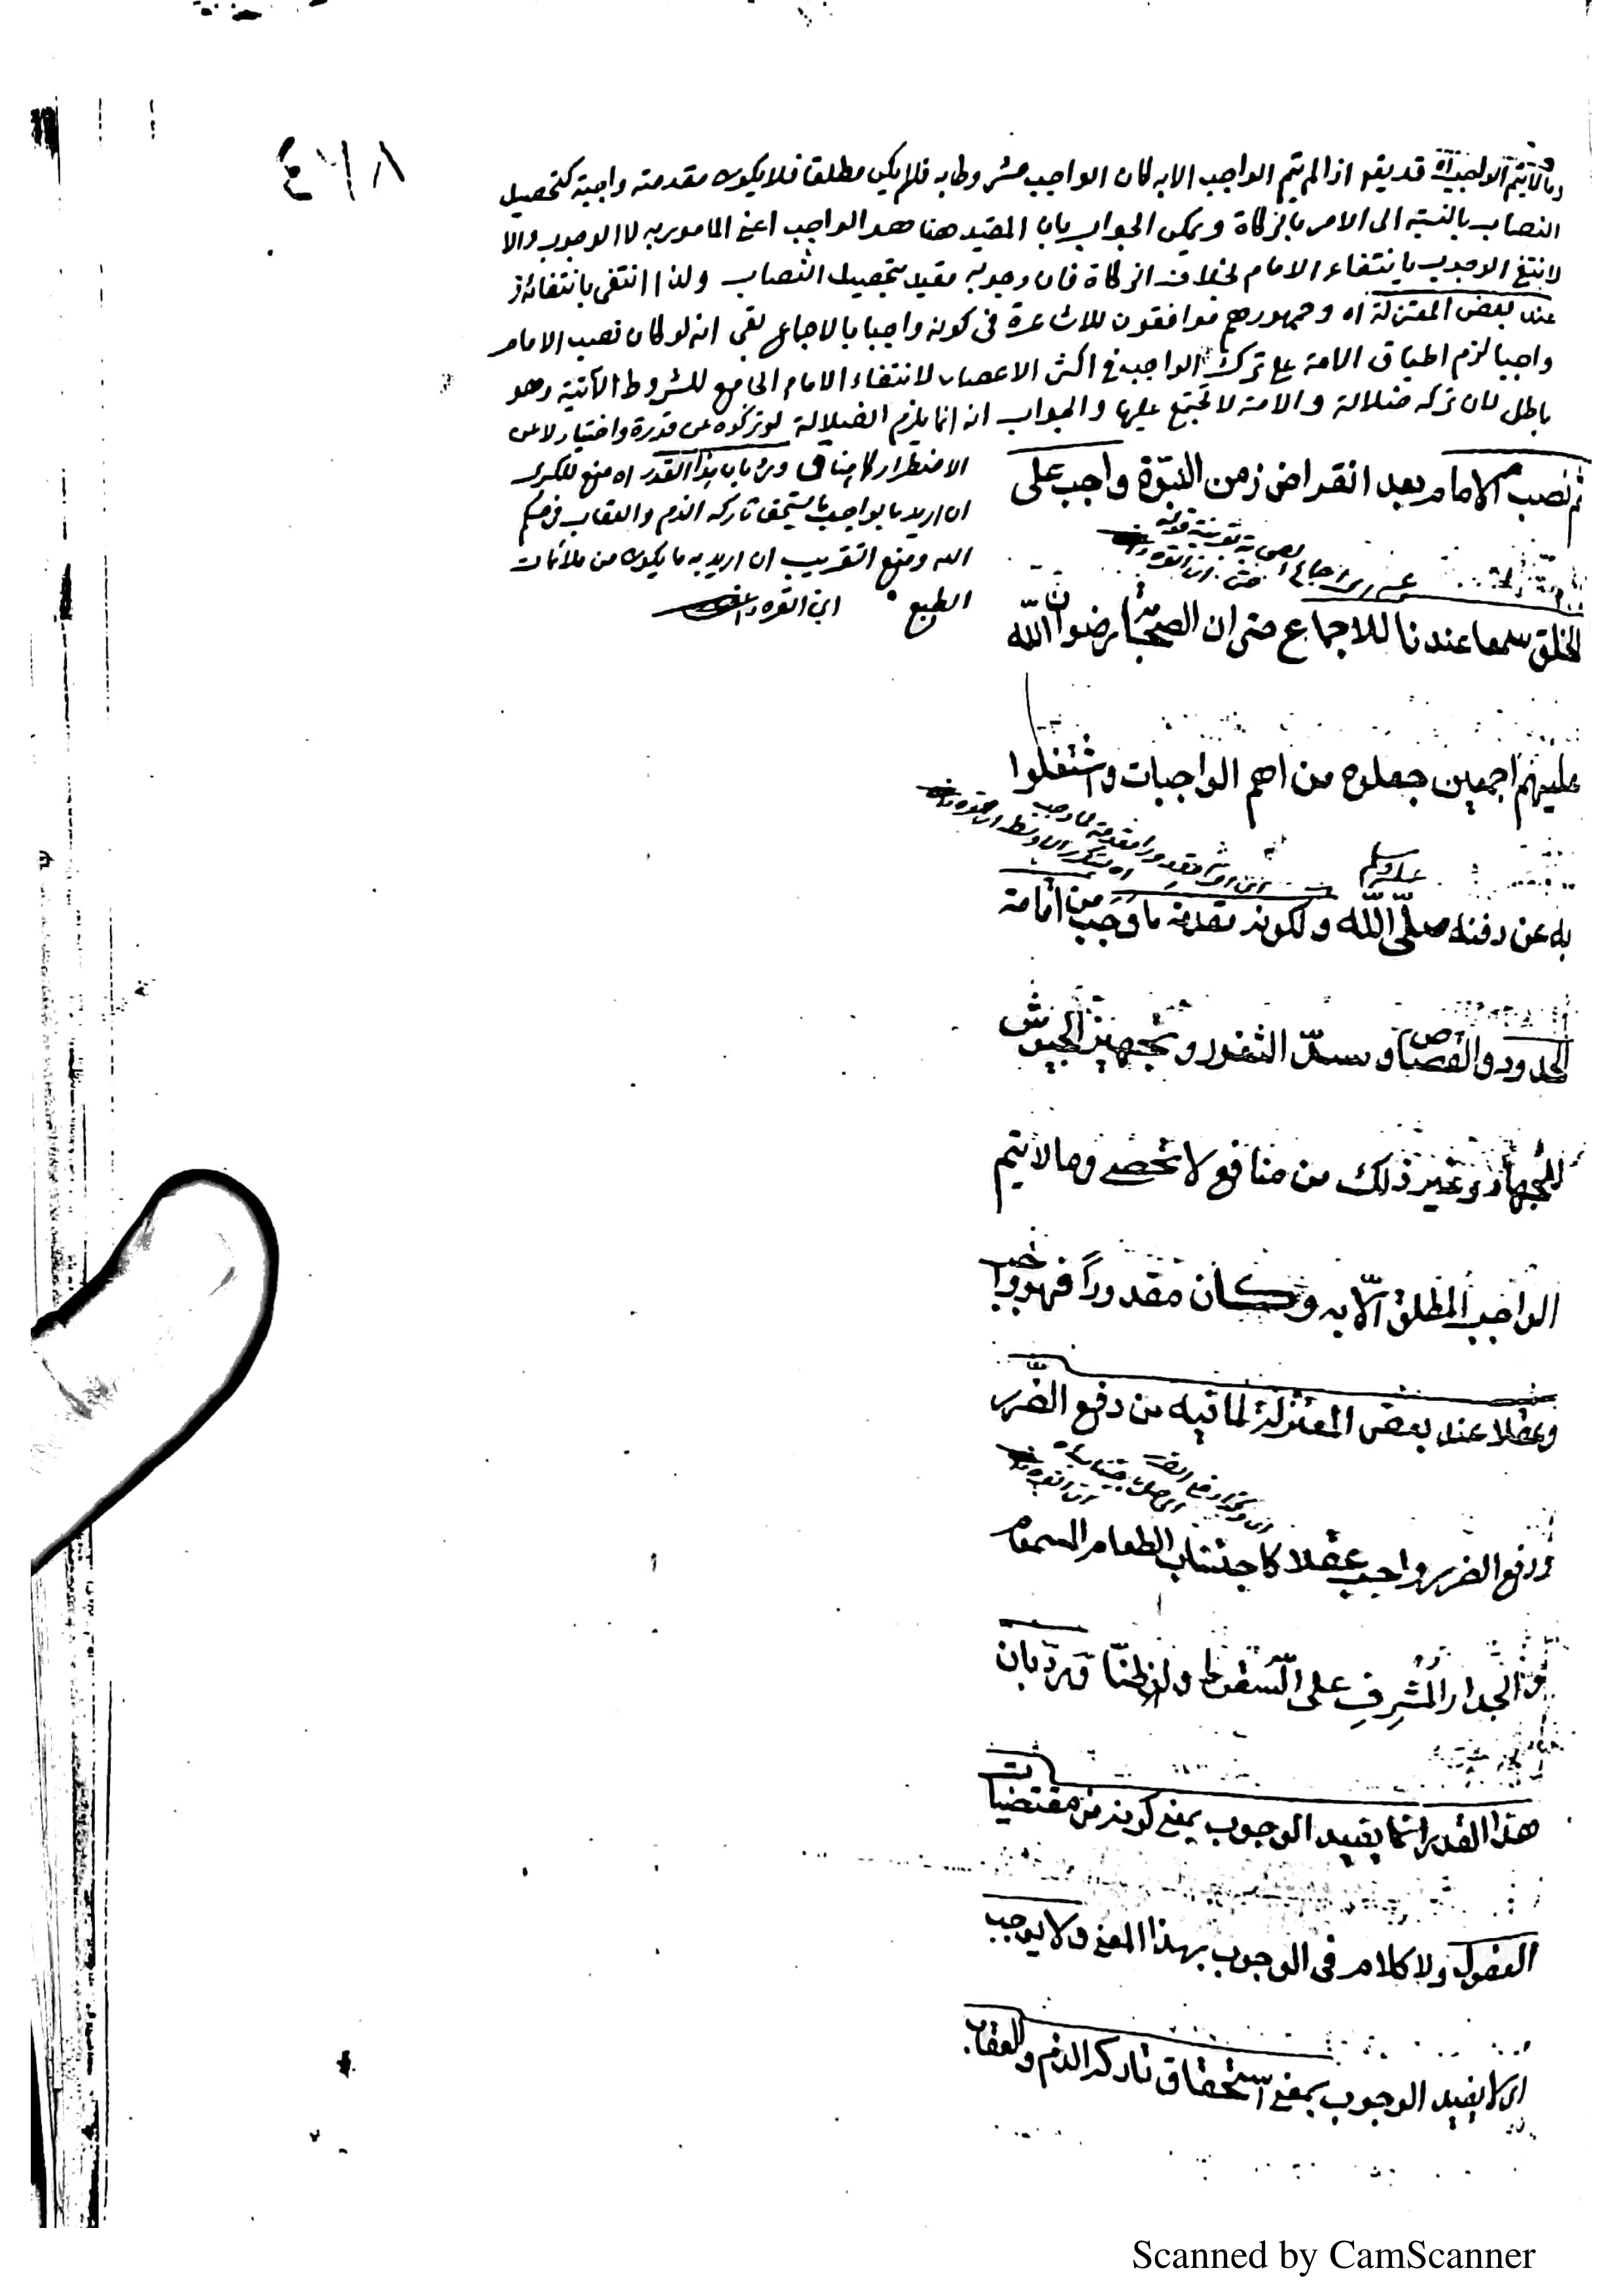 ٤٦٨
وما لا يتم الواجب اه قد يقو اذا لم يتم الواجب الا به لكان الواجب مشروطا به فلم يكن مطلقا فلا يكون مقدمته واجبة كتحصيل
النصاب بالنسبة الى الامر بالزكاة ويمكن الجواب بان المقيد هنا هو الواجب اعني المامور به لا الوجوب والا
لانتفى الوجوب بانتفاء الامام بخلاف الزكاة فان وجوبه مقيد بتحصيل النصاب ولذا انتفى بانتفائه
عند بعض المعتزلة اه وجمهورهم موافقون للاشاعرة فى كونه واجبا بالاجماع بقى انه لو كان نصب الامام
واجبا لزم اطباق الامة على ترك الواجب فى اكثر الاعصار لانتفاء الامام الجامع للشروط الآتية وهو
باطل لان تركه ضلالة والامة لا تجتمع عليها والجواب انه انما يلزم الضلالة لو تركوه عن قدرة واختيار لا عن
الاضطرار كما هنا ورد بان هذا القدر اه منع للكبرى
ان اريد بالواجب ما يستحق تاركه الذم والعقاب فى حكم
الله ومنع التقريب ان اريد به ما يكون من ملائمات
الطبع ابن القره داغى
ثم نصب الامام بعد انقراض زمن النبوّة واجب على
الخلق سمعا عندنا للاجماع حتى ان الصحابة رضوان الله
عليهم اجمعين جعلوه من اهم الواجبات واشتغلوا
به عن دفنه صلّى اللّه عليه وسلم ولكونه مقدمة ما وجب من اقامة
الحدود والقصاص وسدّ الثغور وتجهيز الجيوش
للجهاد وغير ذلك من منافع لا تحصى وما لا يتم
الواجب المطلق الّا به وكان مقدوراً فهو واجب
وعقلا عند بعض المعتزلة لما فيه من دفع الضّرر
ودفع الضرر واجب عقلا كاجتناب الطعام المسموم
والجدار المُشرِفِ على السّقوط ولو ظنّا وردّ بان
هذا القدر انما يفيد الوجوب بمعنى كونه من مقتضيات
العقول ولا كلام فى الوجوب بهذا المعنى ولا يوجب
اى لا يفيد الوجوب بمعنى استحقاق تاركه الذم والعقاب
Scanned by CamScanner